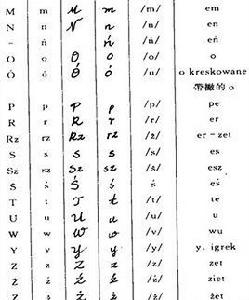 M m M m /m/ em
N n N n /n/ en
– ń ń /ń/ eń
O o O o /o/ o
Ó ó Ó ó /u/ o kreskowane
帶撇的 o
P p P p /p/ pe
R r R r /r/ er
Rz rz Rz rz /ż/ er-zet
S s S s /s/ es
Sz sz Sz sz /sz/ esz
Ś ś Ś ś /ś/ eś
T t T t /t/ te
U u U u /u/ u
W w W w /v/ wu
Y y Y y /y/ y, igrek
Z z Z z /z/ zet
Ź ź Ź ź /ź/ ziet
Ż ż Ż ż /ż/ żet